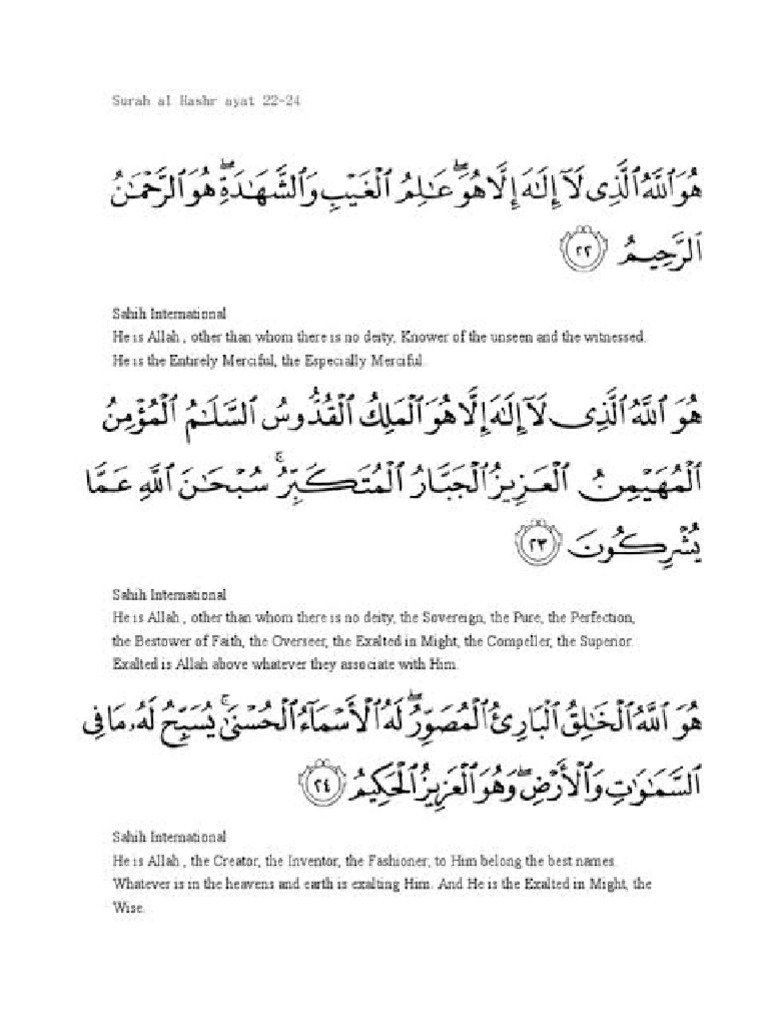 Surah al Hashr ayat 22-24
هُوَ ٱللَّهُ ٱلَّذِى لَآ إِلَـٰهَ إِلَّا هُوَ ۖ عَـٰلِمُ ٱلْغَيْبِ وَٱلشَّهَـٰدَةِ ۖ هُوَ ٱلرَّحْمَـٰنُ
ٱلرَّحِيمُ ٢٢
Sahih International
He is Allah , other than whom there is no deity, Knower of the unseen and the witnessed.
He is the Entirely Merciful, the Especially Merciful.
هُوَ ٱللَّهُ ٱلَّذِى لَآ إِلَـٰهَ إِلَّا هُوَ ٱلْمَلِكُ ٱلْقُدُّوسُ ٱلسَّلَـٰمُ ٱلْمُؤْمِنُ
ٱلْمُهَيْمِنُ ٱلْعَزِيزُ ٱلْجَبَّارُ ٱلْمُتَكَبِّرُ ۚ سُبْحَـٰنَ ٱللَّهِ عَمَّا
يُشْرِكُونَ ٢٣
Sahih International
He is Allah , other than whom there is no deity, the Sovereign, the Pure, the Perfection,
the Bestower of Faith, the Overseer, the Exalted in Might, the Compeller, the Superior.
Exalted is Allah above whatever they associate with Him.
هُوَ ٱللَّهُ ٱلْخَـٰلِقُ ٱلْبَارِئُ ٱلْمُصَوِّرُ ۖ لَهُ ٱلْأَسْمَآءُ ٱلْحُسْنَىٰ ۚ يُسَبِّحُ لَهُۥ مَا فِى
ٱلسَّمَـٰوَٰتِ وَٱلْأَرْضِ ۖ وَهُوَ ٱلْعَزِيزُ ٱلْحَكِيمُ ٢٤
Sahih International
He is Allah , the Creator, the Inventor, the Fashioner; to Him belong the best names.
Whatever is in the heavens and earth is exalting Him. And He is the Exalted in Might, the
Wise.